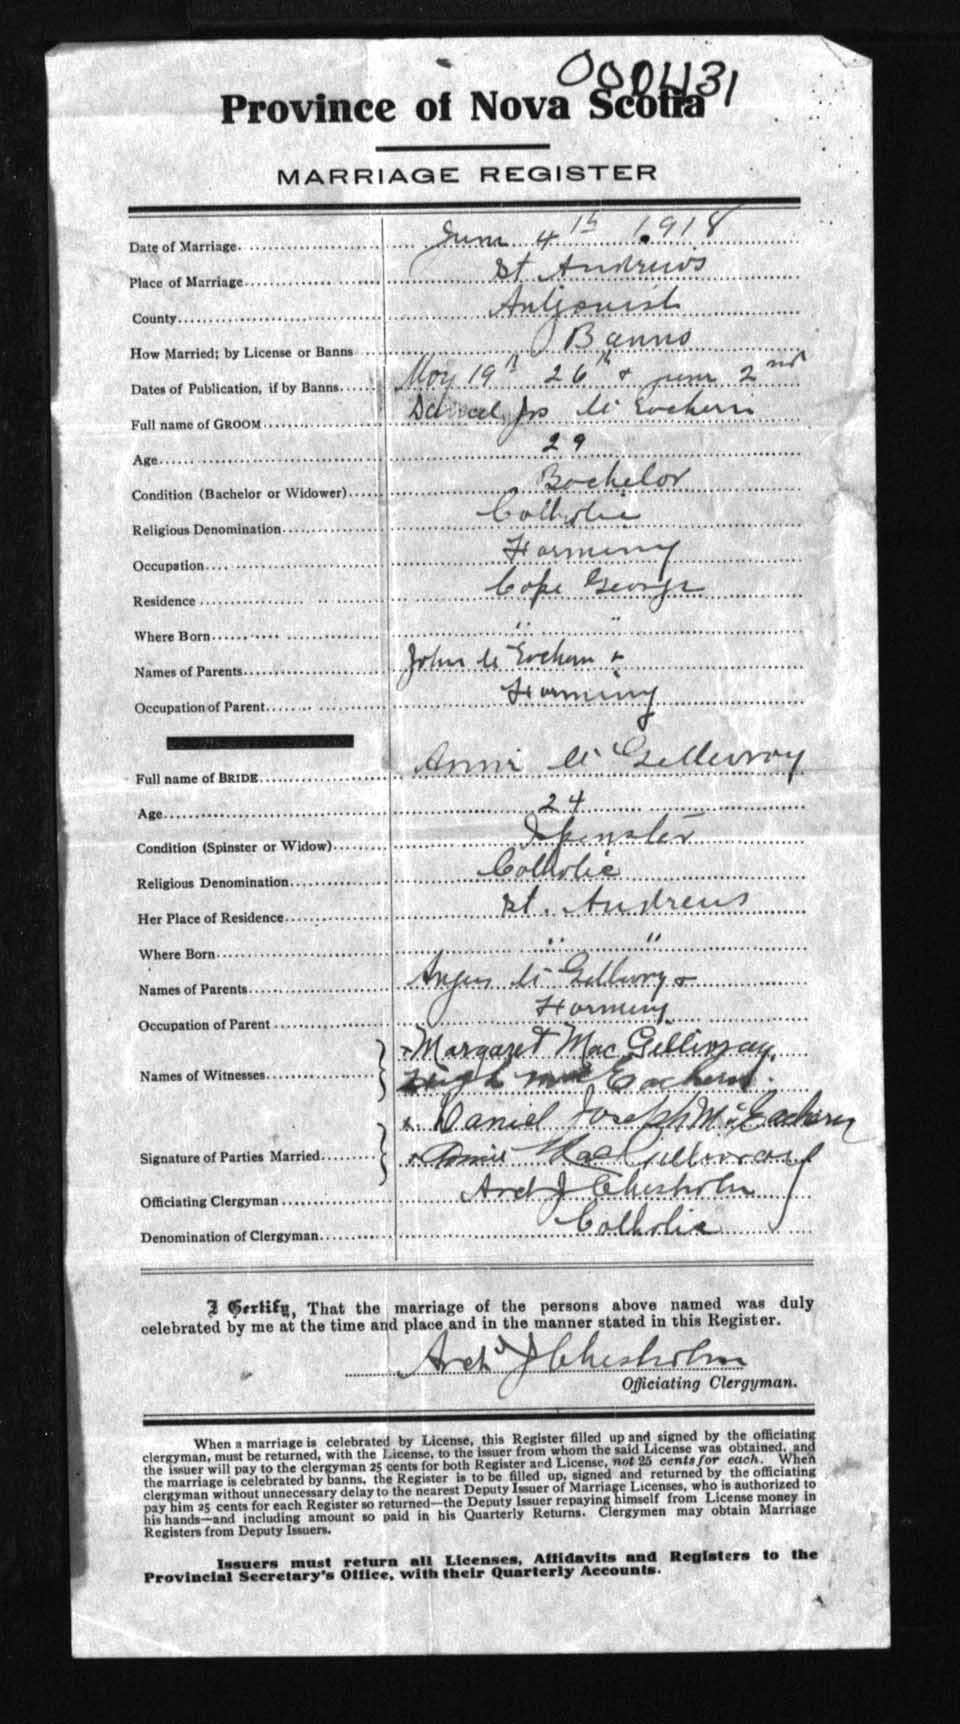 0001131
Province of Nova Scotia
MARRIAGE REGISTER
Date of Marriage June 4th 1918
Place of Marriage St Andrews
County Antigonish
How Married; by License or Banns Banns
Dates of Publication, if by Banns May 19th 26th & June 2nd
Full name of GROOM Daniel Jos Mc Eachern
Age 29
Condition (Bachelor or Widower) Bachelor
Religious Denomination Catholic
Occupation Farming
Residence Cape George
Where Born " "
Names of Parents John Mc Eachern &
Occupation of Parent Farming
Full name of BRIDE Annie Mc Gillivray
Age 24
Condition (Spinster or Widow) Spinster
Religious Denomination Catholic
Her Place of Residence St. Andrews
Where Born " "
Names of Parents Angus Mc Gillivry &
Occupation of Parent Farming
Names of Witnesses Margaret MacGillivray
Hugh MacEachern.
x Daniel Joseph McEachern
Signature of Parties Married x Annie MacGillivray
Officiating Clergyman Arch J Chisholm
Denomination of Clergyman Catholic
I Certify, That the marriage of the persons above named was duly
celebrated by me at the time and place and in the manner stated in this Register.
Archd J Chisholm
Officiating Clergyman.
When a marriage is celebrated by License, this Register filled up and signed by the officiating
clergyman, must be returned, with the License, to the issuer from whom the said License was obtained, and
the issuer will pay to the clergyman 25 cents for both Register and License, not 25 cents for each. When
the marriage is celebrated by banns, the Register is to be filled up, signed and returned by the officiating
clergyman without unnecessary delay to the nearest Deputy Issuer of Marriage Licenses, who is authorized to
pay him 25 cents for each Register so returned—the Deputy Issuer repaying himself from License money in
his hands—and including amount so paid in his Quarterly Returns. Clergymen may obtain Marriage
Registers from Deputy Issuers.
Issuers must return all Licenses, Affidavits and Registers to the
Provincial Secretary's Office, with their Quarterly Accounts.